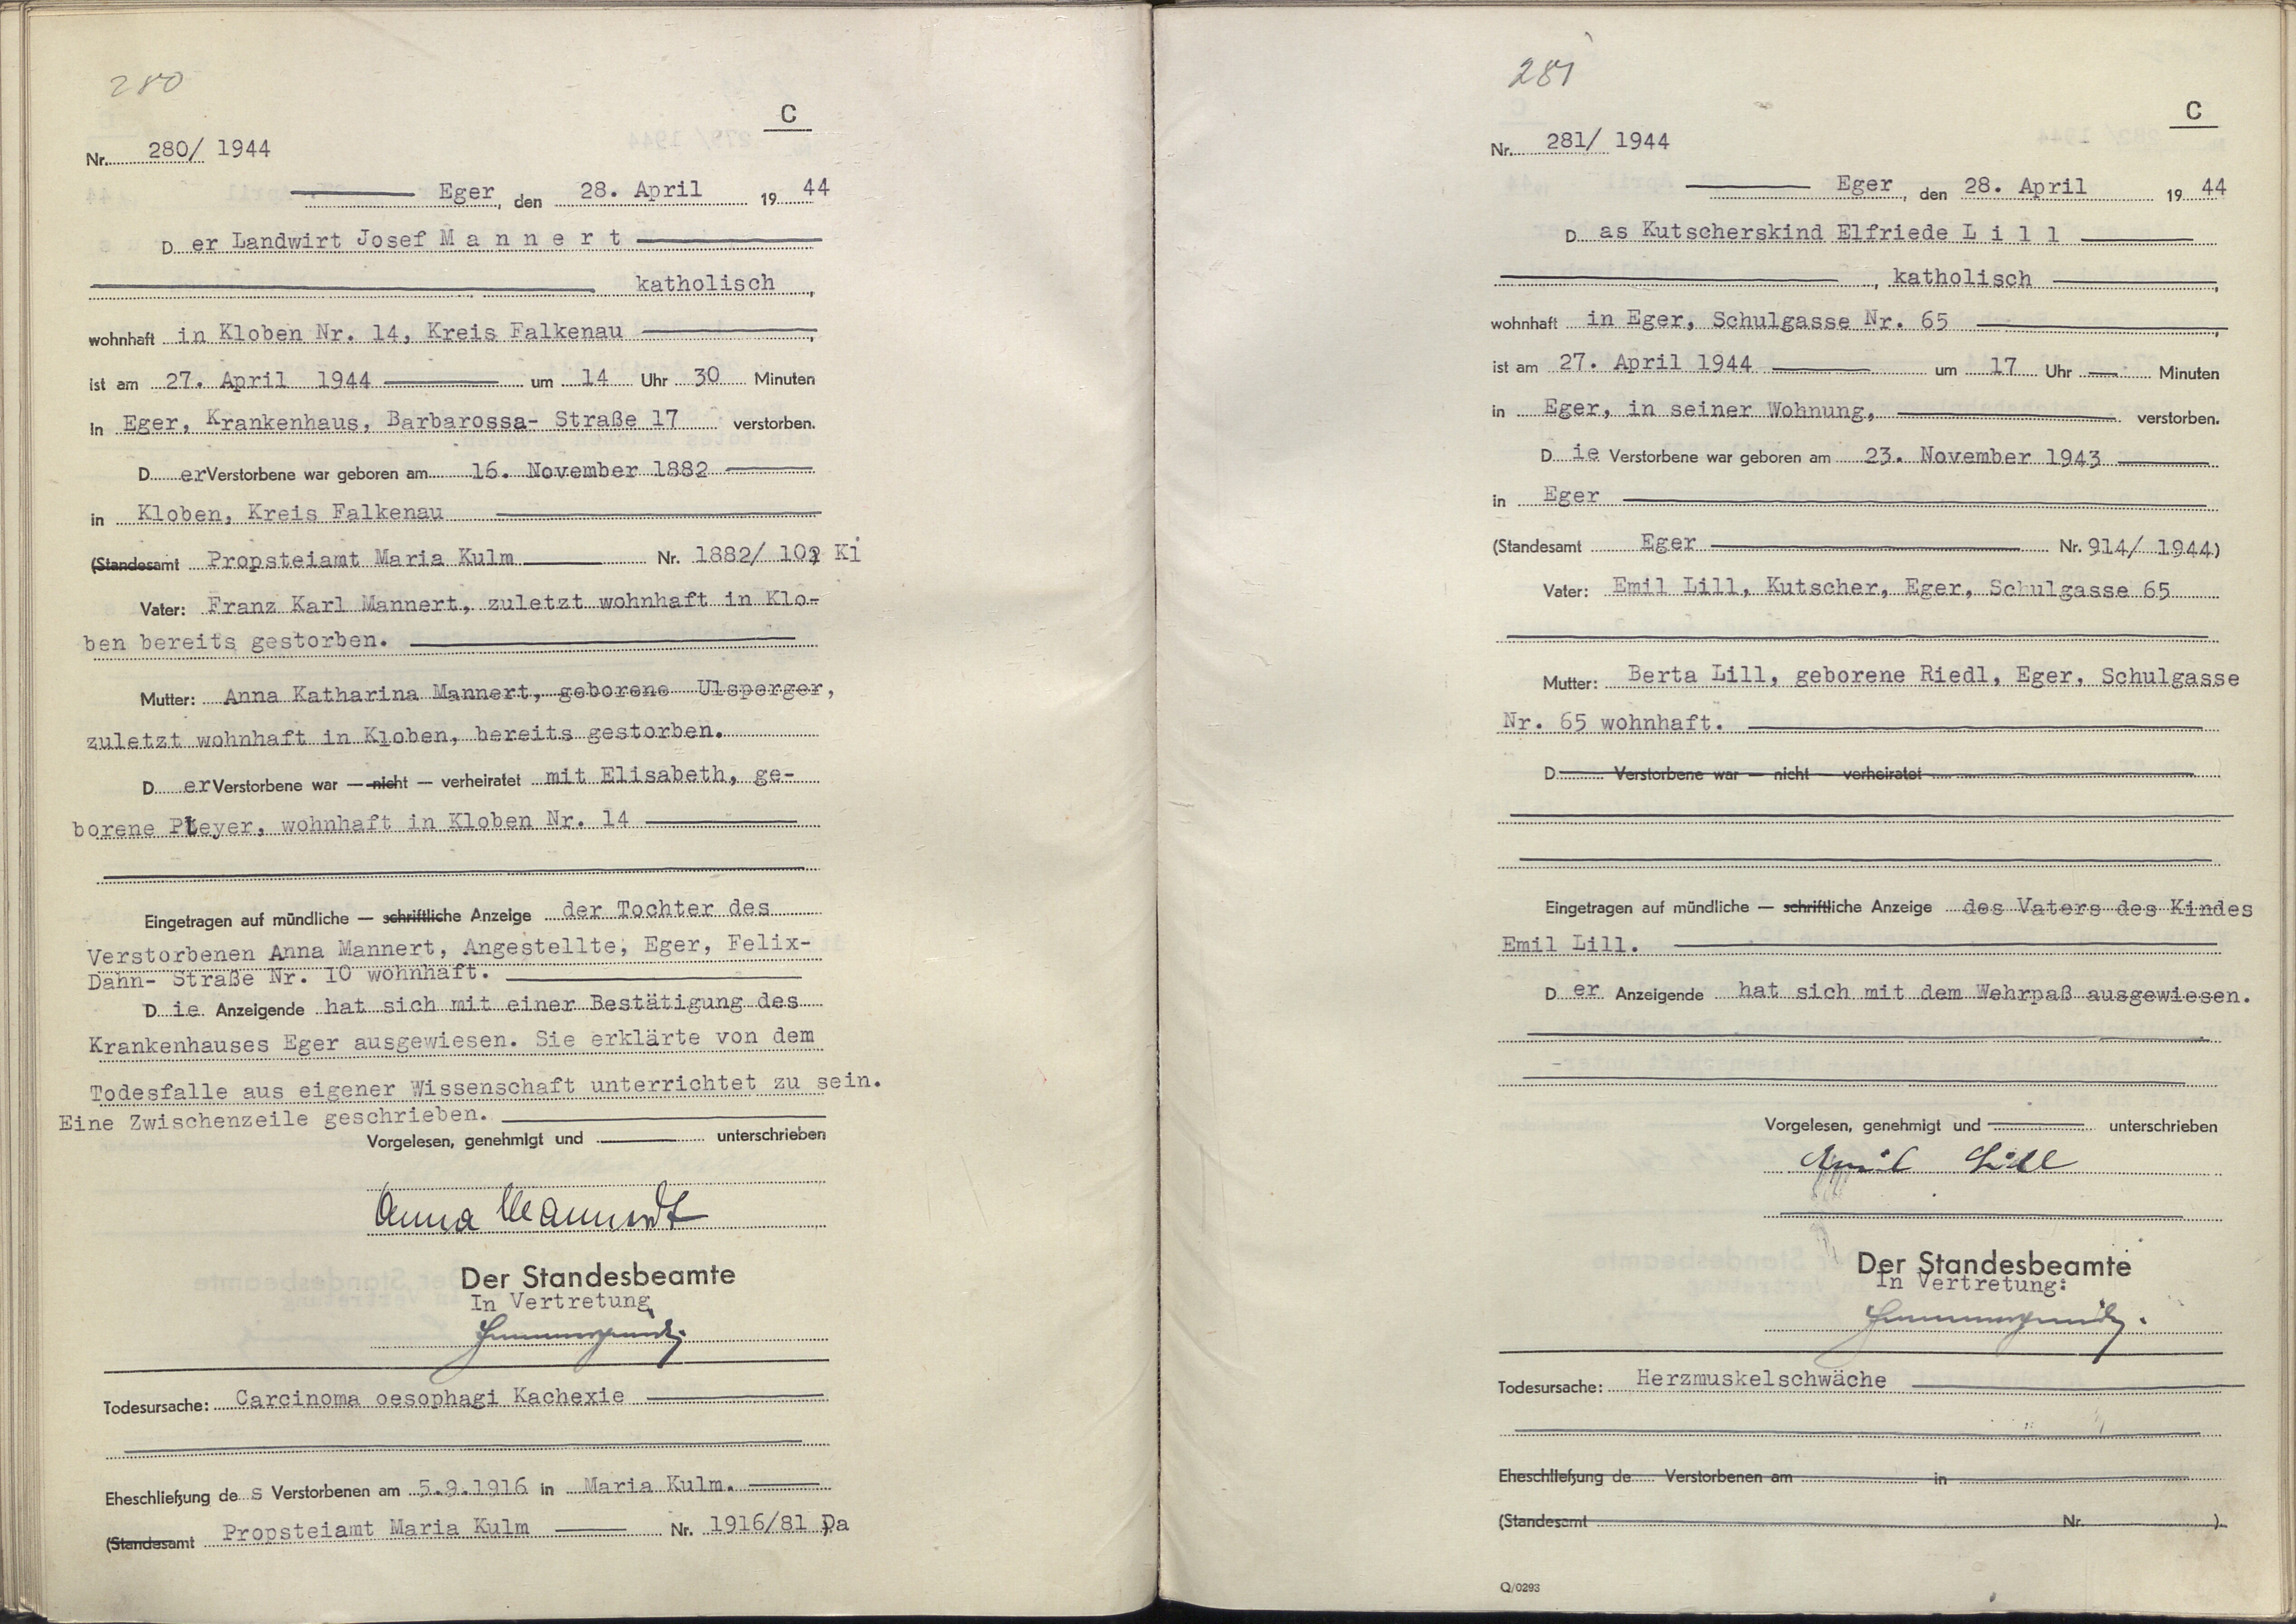 280
C
Nr. 280/ 1944
Eger, den 28. April 19 44
D er Landwirt Josef M a n n e r t
katholisch,
wohnhaft in Kloben Nr. 14, Kreis Falkenau,
ist am 27. April 1944 um 14 Uhr 30 Minuten
in Eger, Krankenhaus, Barbarossa- Straße 17 verstorben.
D er Verstorbene war geboren am 16. November 1882
in Kloben, Kreis Falkenau
(Standesamt Propsteiamt Maria Kulm Nr. 1882/ Ki
Vater: Franz Karl Mannert, zuletzt wohnhaft in Klo-
ben bereits gestorben.
Mutter: Anna Katharina Mannert, geborene Ulsperger,
zuletzt wohnhaft in Kloben, bereits gestorben.
D er Verstorbene war — nicht — verheiratet mit Elisabeth, ge-
borene Pleyer, wohnhaft in Kloben Nr. 14
Eingetragen auf mündliche — schriftliche Anzeige der Tochter des
Verstorbenen Anna Mannert, Angestellte, Eger, Felix-
Dahn- Straße Nr. 10 wohnhaft.
D ie Anzeigende hat sich mit einer Bestätigung des
Krankenhauses Eger ausgewiesen. Sie erklärte von dem
Todesfalle aus eigener Wissenschaft unterrichtet zu sein.
Eine Zwischenzeile geschrieben.
Vorgelesen, genehmigt und unterschrieben
Anna Mannert
Der Standesbeamte
In Vertretung
Todesursache: Carcinoma oesophagi Kachexie
Eheschließung de s Verstorbenen am 5.9.1916 in Maria Kulm.
(Standesamt Propsteiamt Maria Kulm Nr. 1916/81 )Da
281
C
Nr. 281/ 1944
Eger, den 28. April 19 44
D as Kutscherskind Elfriede L i l l
, katholisch,
wohnhaft in Eger, Schulgasse Nr. 65,
ist am 27. April 1944 um 17 Uhr — Minuten
in Eger, in seiner Wohnung, verstorben.
D ie Verstorbene war geboren am 23. November 1943
in Eger
(Standesamt Eger Nr. 914/ 1944)
Vater: Emil Lill, Kutscher, Eger, Schulgasse 65
Mutter: Berta Lill, geborene Riedl, Eger, Schulgasse
Nr. 65 wohnhaft.
D Verstorbene war — nicht — verheiratet
Eingetragen auf mündliche — schriftliche Anzeige des Vaters des Kindes
Emil Lill.
D er Anzeigende hat sich mit dem Wehrpaß ausgewiesen.
Vorgelesen, genehmigt und unterschrieben
Emil Lill
Der Standesbeamte
In Vertretung:
Todesursache: Herzmuskelschwäche
Eheschließung de Verstorbenen am in
(Standesamt Nr. )
Q/0293